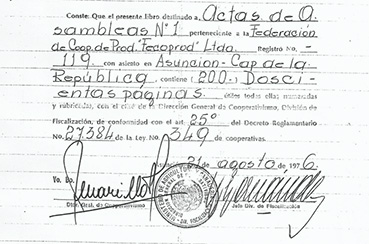 Conste: Que el presente libro destinado a Actas de A.
sambleas Nº 1 perteneciente a la Federación
de Coop. de Prod. "Fecoprod" Ltda. REGISTRO No. -
119 con asiento en Asuncion-Cap de la
República, contiene (200.-) Dosci-
entas páginas. Útiles todas ella; numeradas
y rubricadas, con el de la Dirección General de Cooperativismo, División de
Fiscalización, de conformidad con el art 25º del Decreto Reglamentario
No. 27.384 de la Ley. No. 349 de cooperativas.
21 agosto de 1976.
Vo. Bo.
Dtor. Gral. de Cooperativismo
Jefe Div. de Fiscalización